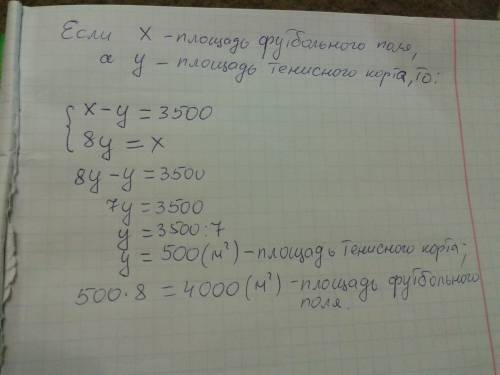 Если x - площадь футбольного поля,
а y - площадь тенисного корта, то:
{ x - y = 3500
8y = x
8y - y = 3500
7y = 3500
y = 3500 : 7
y = 500 (м²) - площадь тенисного корта;
500 · 8 = 4000 (м²) - площадь футбольного
поля.